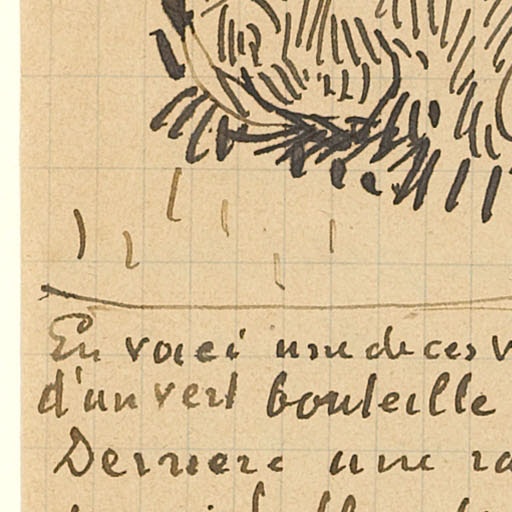 En voici une de ces
d'un vert bouteille
Derriere une